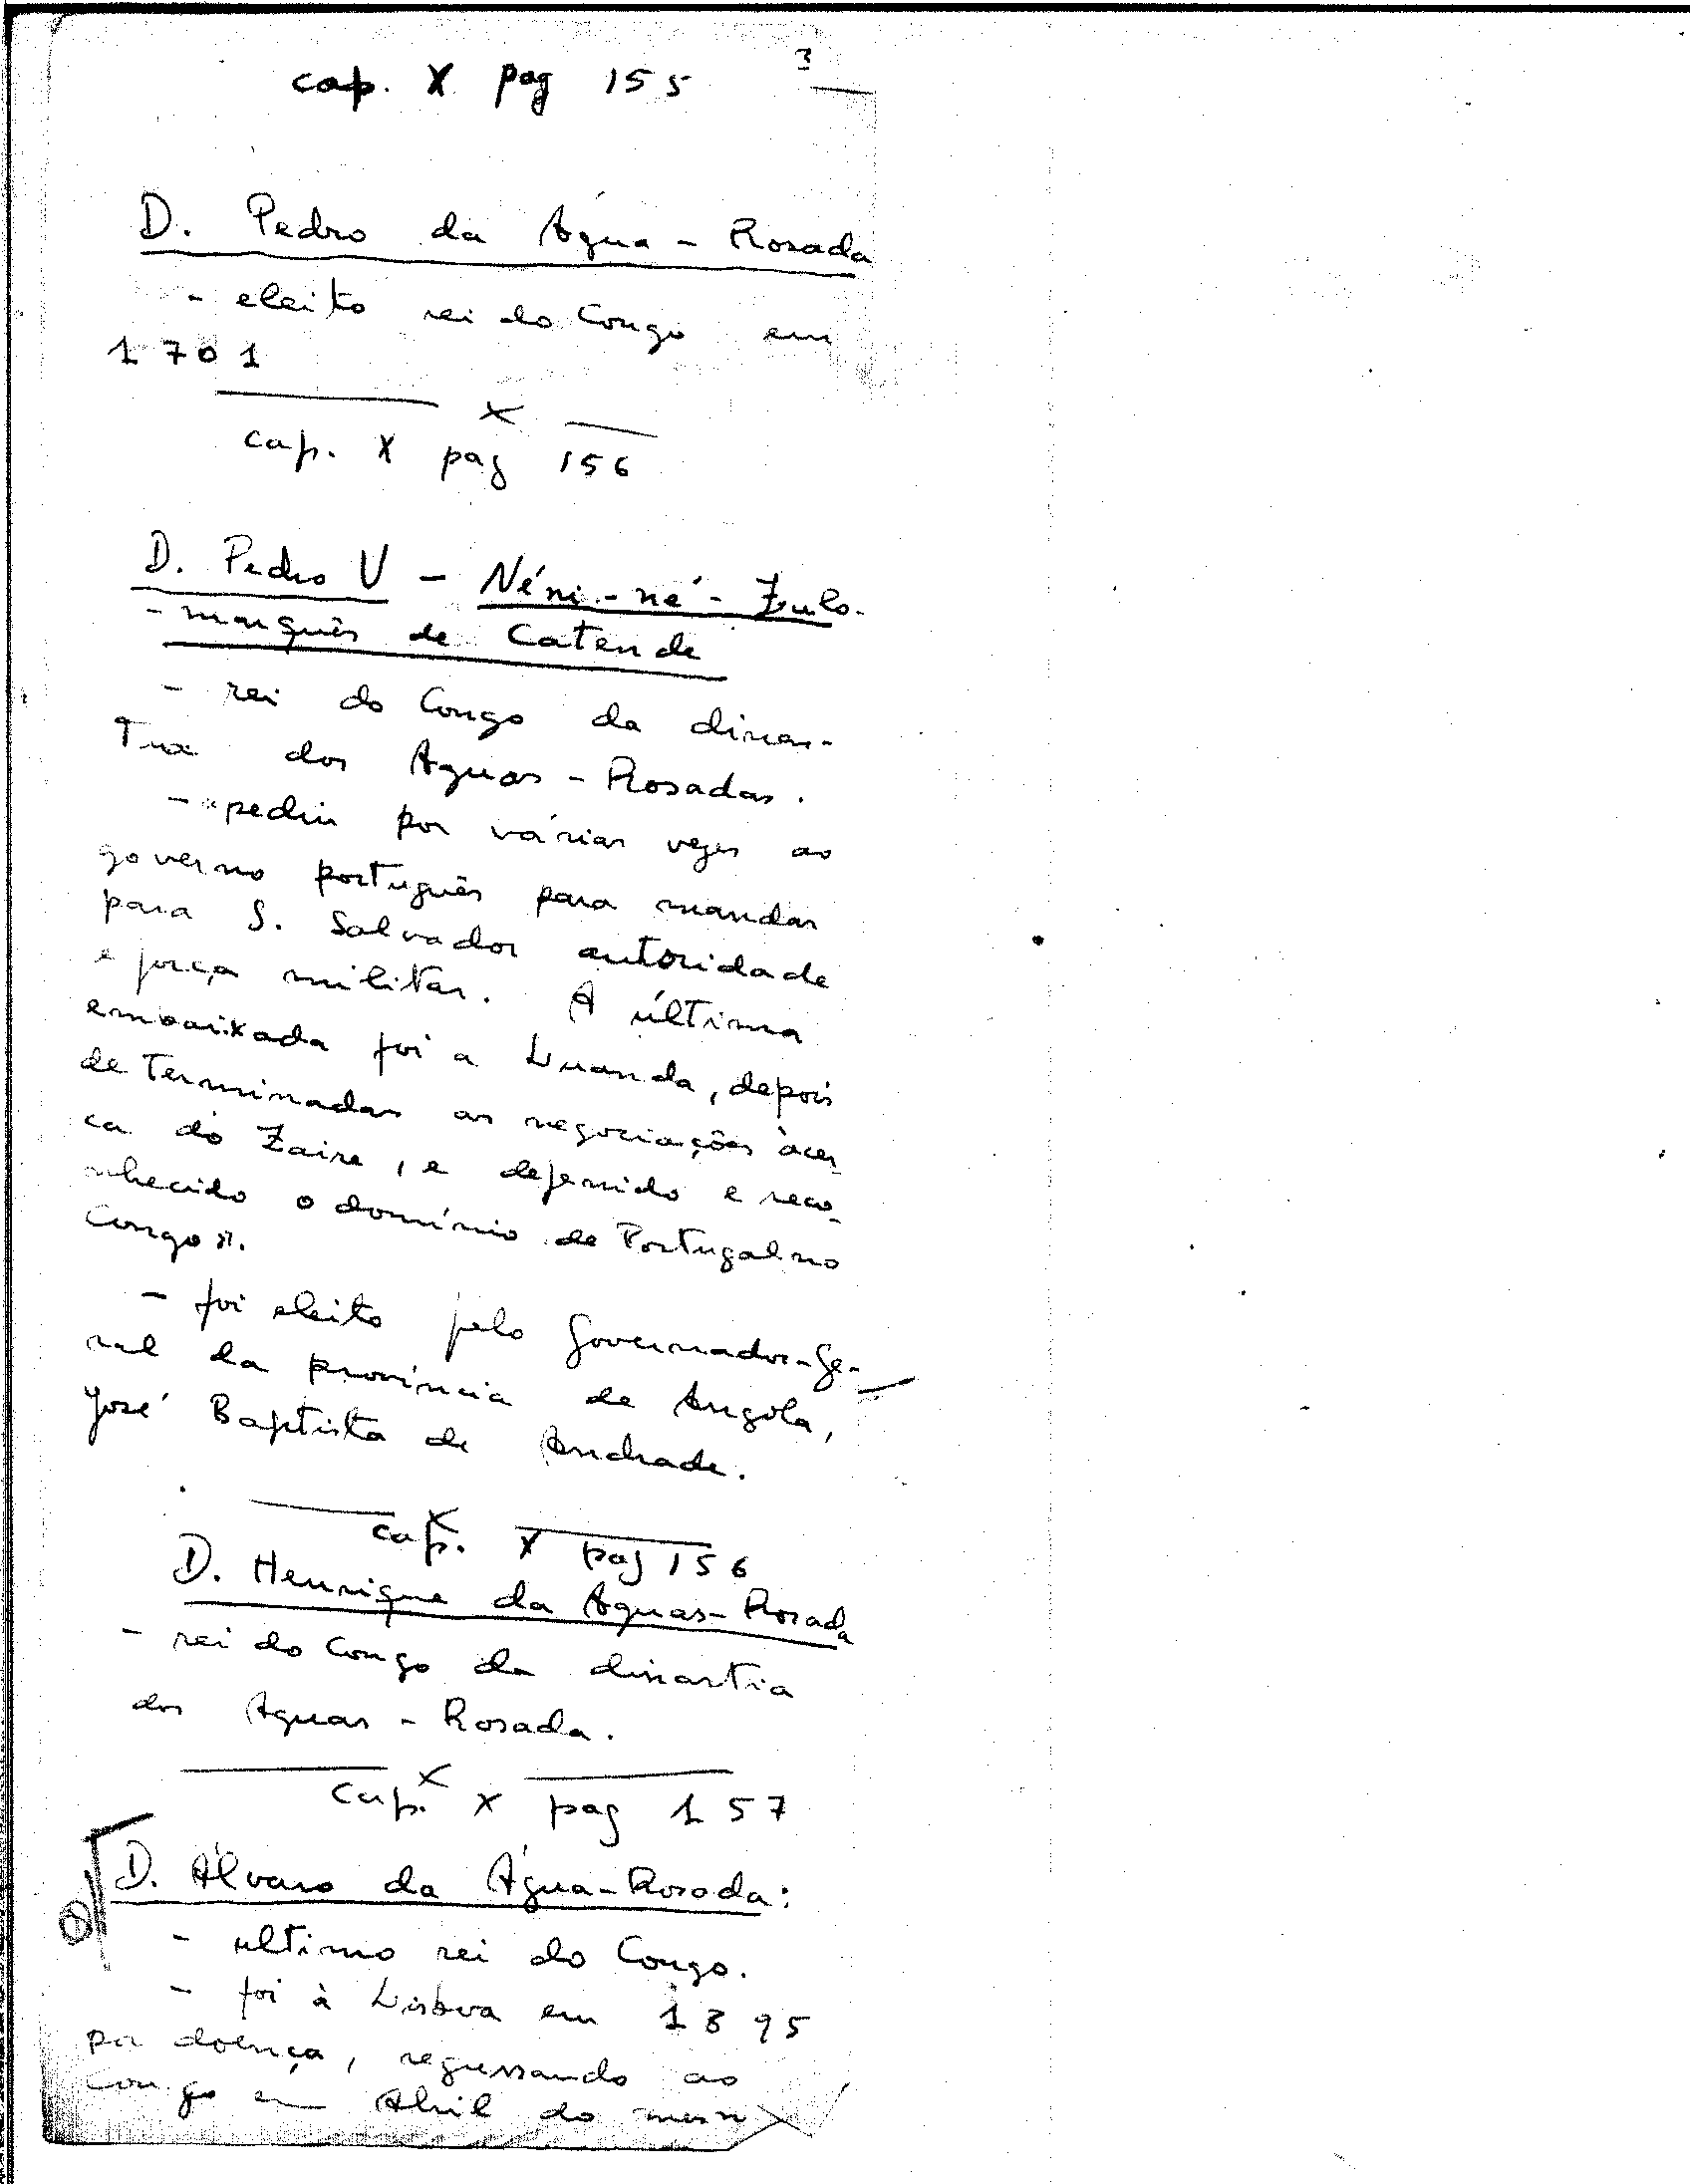 3
cap. X pag 155
D. Pedro da Água - Rosada
- eleito rei do Congo em
1701
x
cap. X pag 156
D. Pedro V - Néni-né-Zulo-
- marquês de Catende
- rei do Congo da dinas-
tia dos Aguas - Rosadas.
- pediu por várias vezes ao
governo português para mandar
para S. Salvador autoridade
e força militar. A última
embaixada foi a Luanda, depois
de terminadas as negociações àcer
ca do Zaire, e defenido e reco-
nhecido o domínio de Portugal no
Congo".
- foi eleito pelo Governador-Ge-
ral da província de Angola,
José Baptista de Andrade.
x
cap. X pag 156
D. Henrique da Aguas-Rosada
- rei do Congo da dinastia
dos Aguas - Rosada.
x
Cap. X pag 157
D. Álvaro da Água-Rosada:
- ultimo rei do Congo.
- foi à Lisboa em 1895
por doença, regressando ao
Congo em Abril do mesm